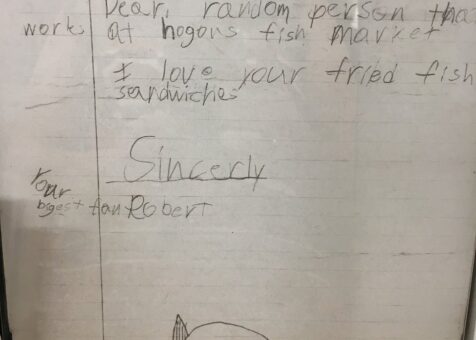 Dear, random person tha
works at hogans fish market
I love your fried fish
sandwiches
Sincerly
Your
bigest fan Robert